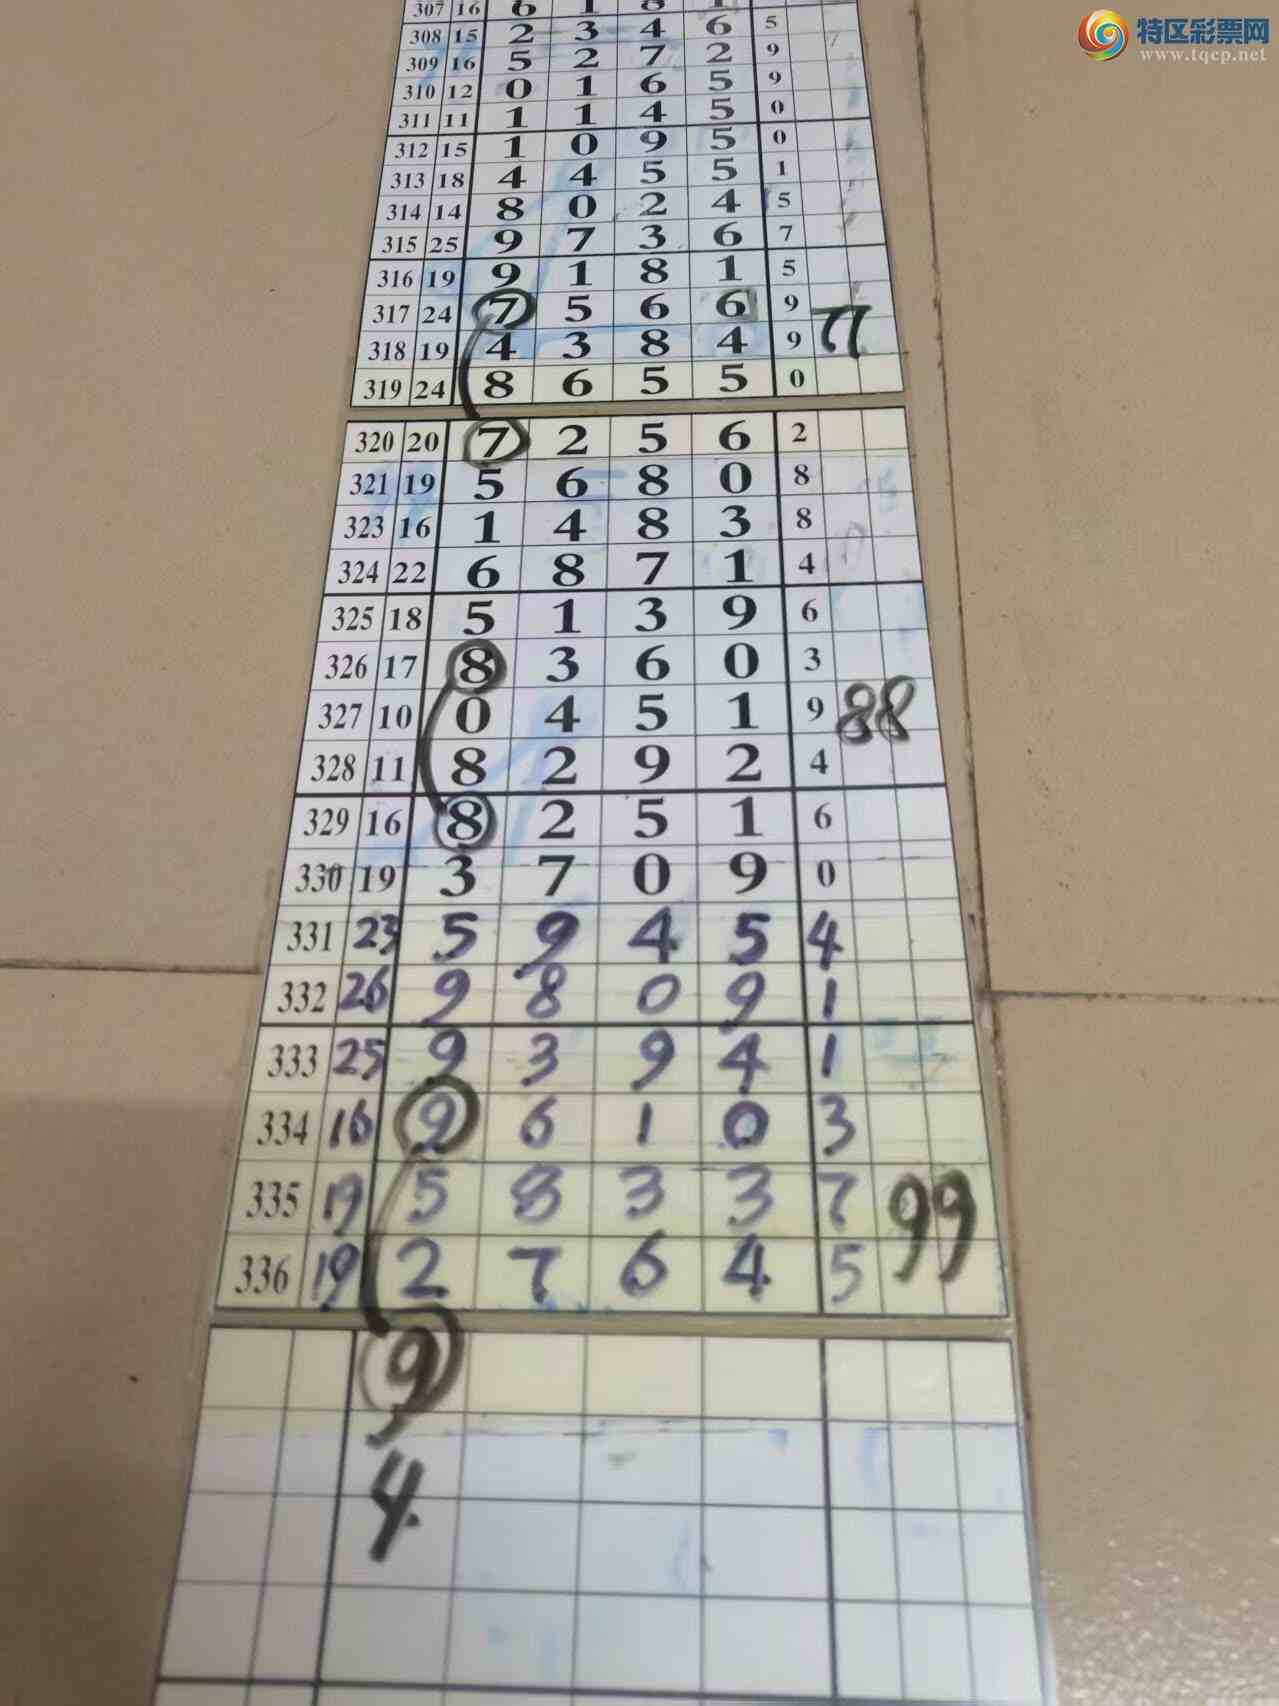 特区彩票网
www.tqcp.net
307 16 6 1 8 1
308 15 2 3 4 6 5
309 16 5 2 7 2 9
310 12 0 1 6 5 9
311 11 1 1 4 5 0
312 15 1 0 9 5 0
313 18 4 4 5 5 1
314 14 8 0 2 4 5
315 25 9 7 3 6 7
316 19 9 1 8 1 5
317 24 7 5 6 6 9
77
318 19 4 3 8 4 9
319 24 8 6 5 5 0
320 20 7 2 5 6 2
321 19 5 6 8 0 8
323 16 1 4 8 3 8
324 22 6 8 7 1 4
325 18 5 1 3 9 6
326 17 8 3 6 0 3
327 10 0 4 5 1 9 88
328 11 8 2 9 2 4
329 16 8 2 5 1 6
330 19 3 7 0 9 0
331 23 5 9 4 5 4
332 26 9 8 0 9 1
333 25 9 3 9 4 1
334 16 9 6 1 0 3
335 19 5 8 3 3 7 99
336 19 2 7 6 4 5
9
4